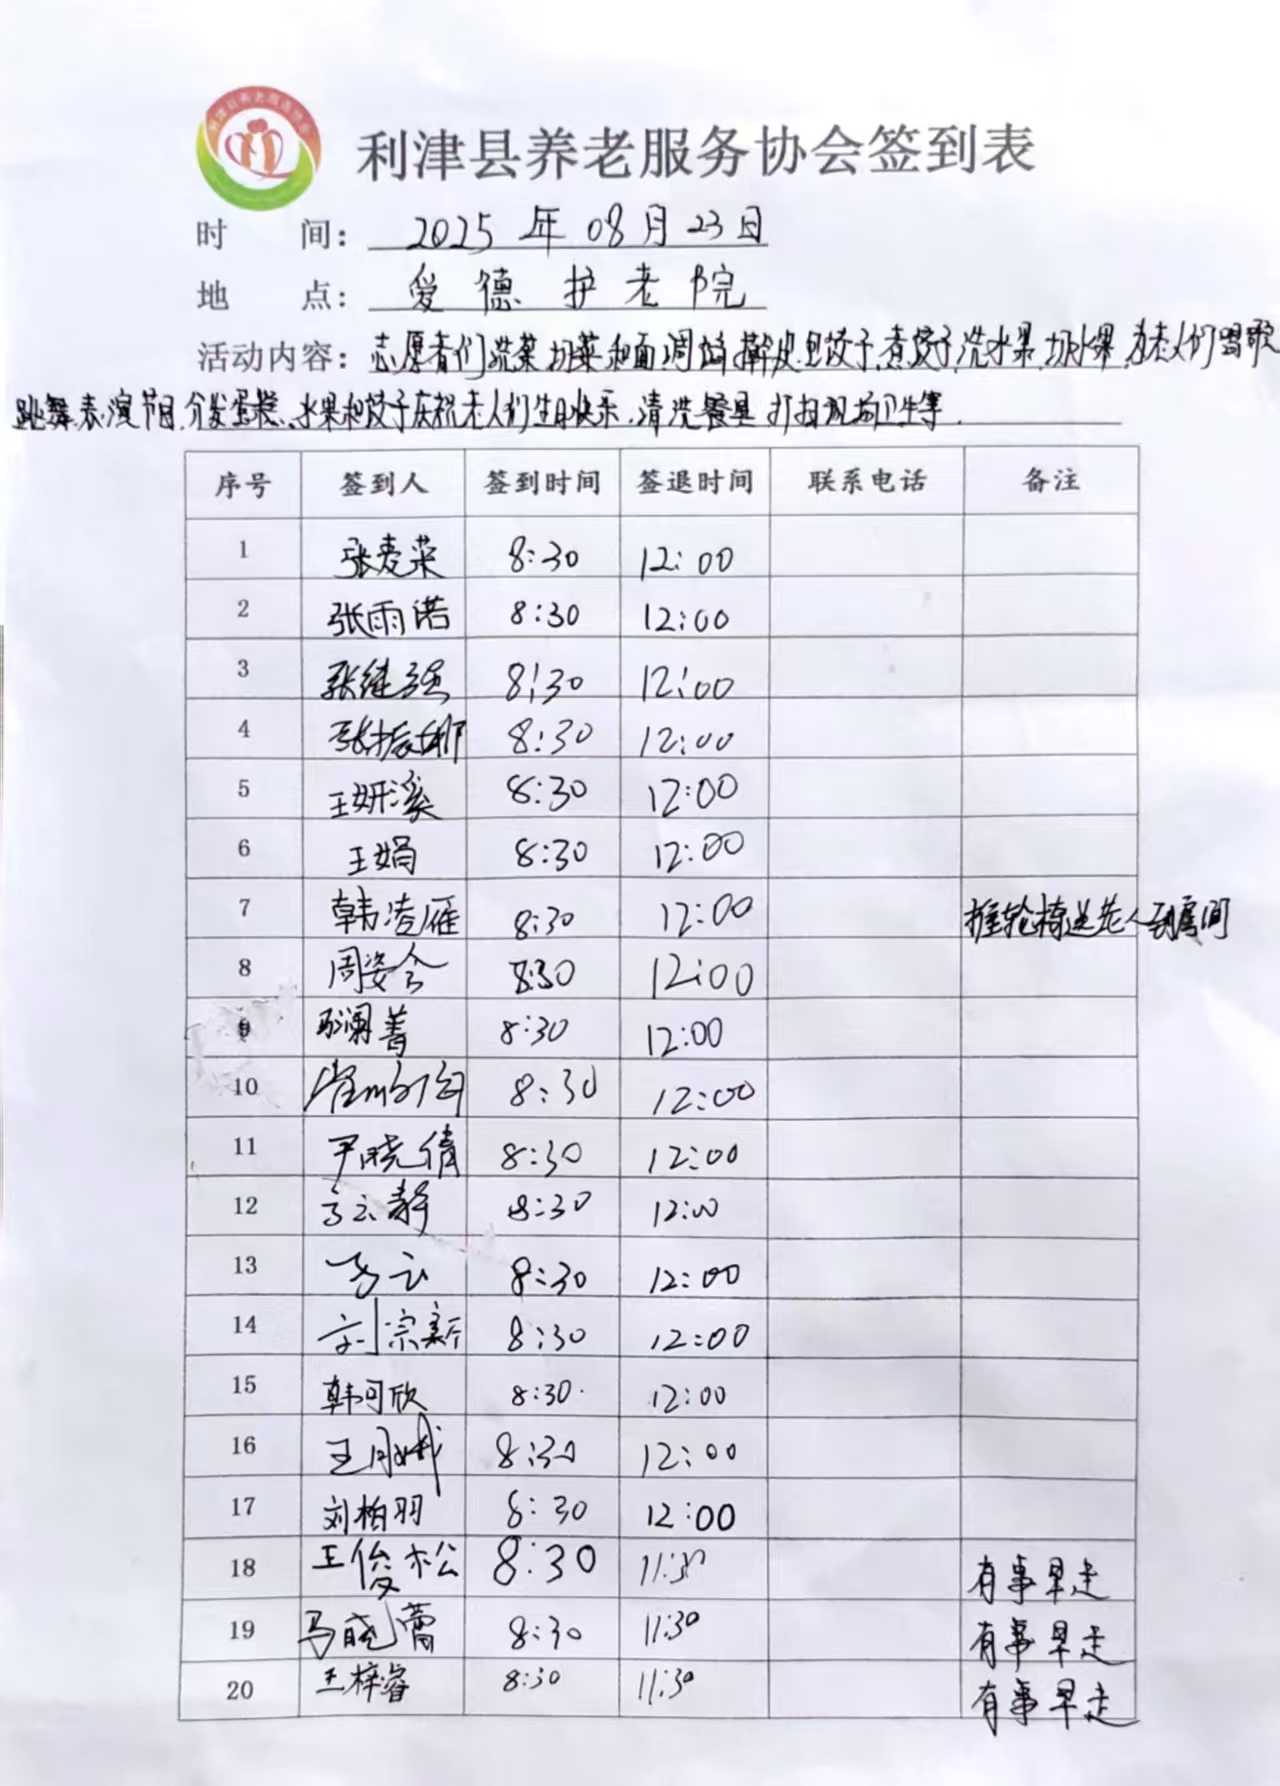 利津县养老服务协会签到表
时 间： 2025 年 08 月 23 日
地 点： 爱 德 护 老 院
活动内容：志愿者们洗菜.切菜.和面.调馅.擀皮.包饺子.煮饺子.洗水果.切水果.为老人们唱歌
跳舞.表演节目.分发蛋糕、水果和饺子庆祝老人们生日快乐.清洗餐具.打扫现场卫生等.
序号 签到人 签到时间 签退时间 联系电话 备注
1 张麦菜 8:30 12:00
2 张雨诺 8:30 12:00
3 张继强 8:30 12:00
4 张振娜 8:30 12:00
5 王妍溪 8:30 12:00
6 王娟 8:30 12:00
7 韩凌雁 8:30 12:00 推轮椅送老人到房间
8 周姿含 8:30 12:00
9 澜菁 8:30 12:00
10 8:30 12:00
11 尹晓倩 8:30 12:00
12 静 8:30 12:00
13 8:30 12:00
14 刘宗新 8:30 12:00
15 韩可欣 8:30 12:00
16 王月娥 8:30 12:00
17 刘柏羽 8:30 12:00
18 王俊松 8:30 11:30 有事早走
19 马晓蕾 8:30 11:30 有事早走
20 王梓睿 8:30 11:30 有事早走